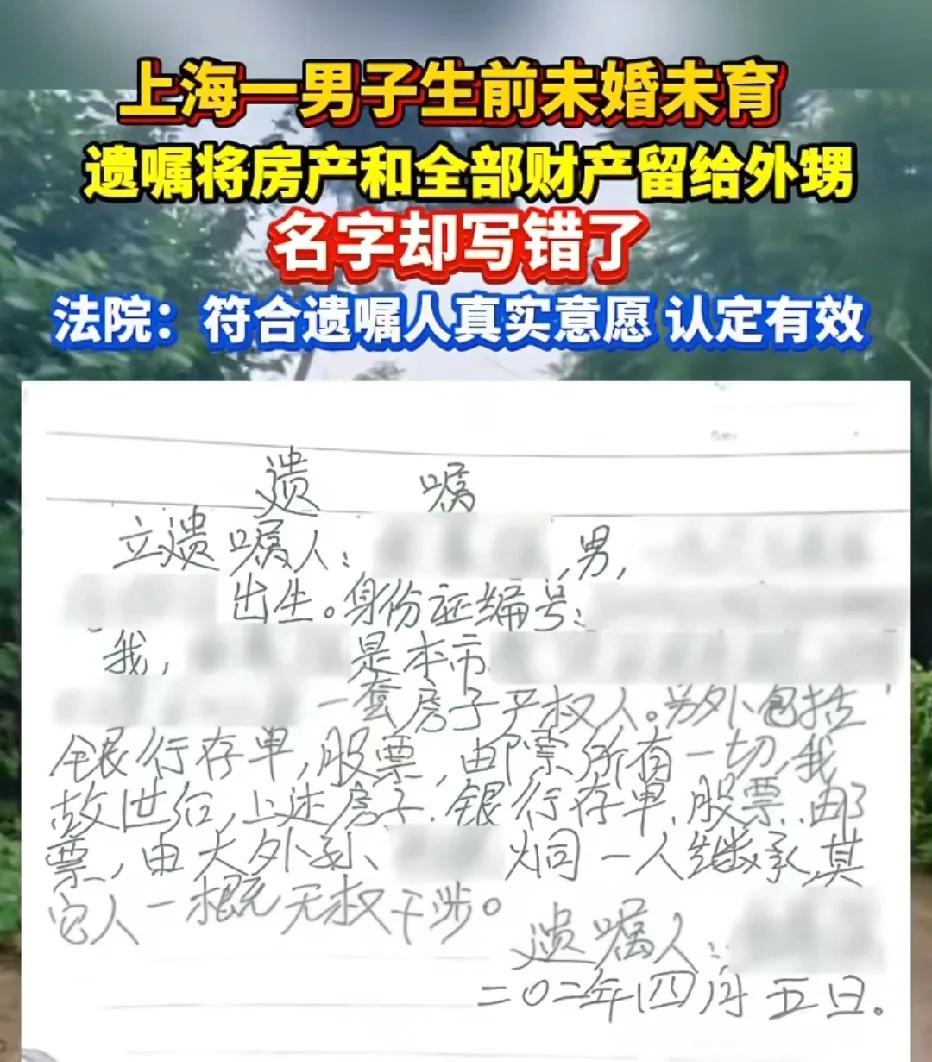 上海一男子生前未婚未育
遗嘱将房产和全部财产留给外甥
名字却写错了
法院：符合遗嘱人真实意愿 认定有效
遗 嘱
立遗嘱人： ，男，
出生。身份证编号：
我， 是本市
一套房子产权人。另外包括
银行存单，股票，邮票所有一切，我
故世后，上述房子.银行存单.股票.邮
票，由大外孙、 烔一人继承，其
它人一概无权干涉。
遗嘱人：
二〇二年四月五日。